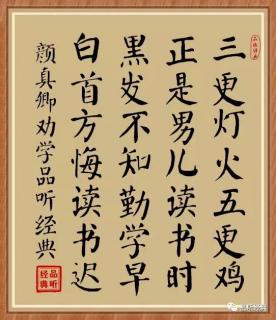 三更灯火五更鸡
正是男儿读书时
黑发不知勤学早
白首方悔读书迟
颜真卿劝学品听经典
品听经典